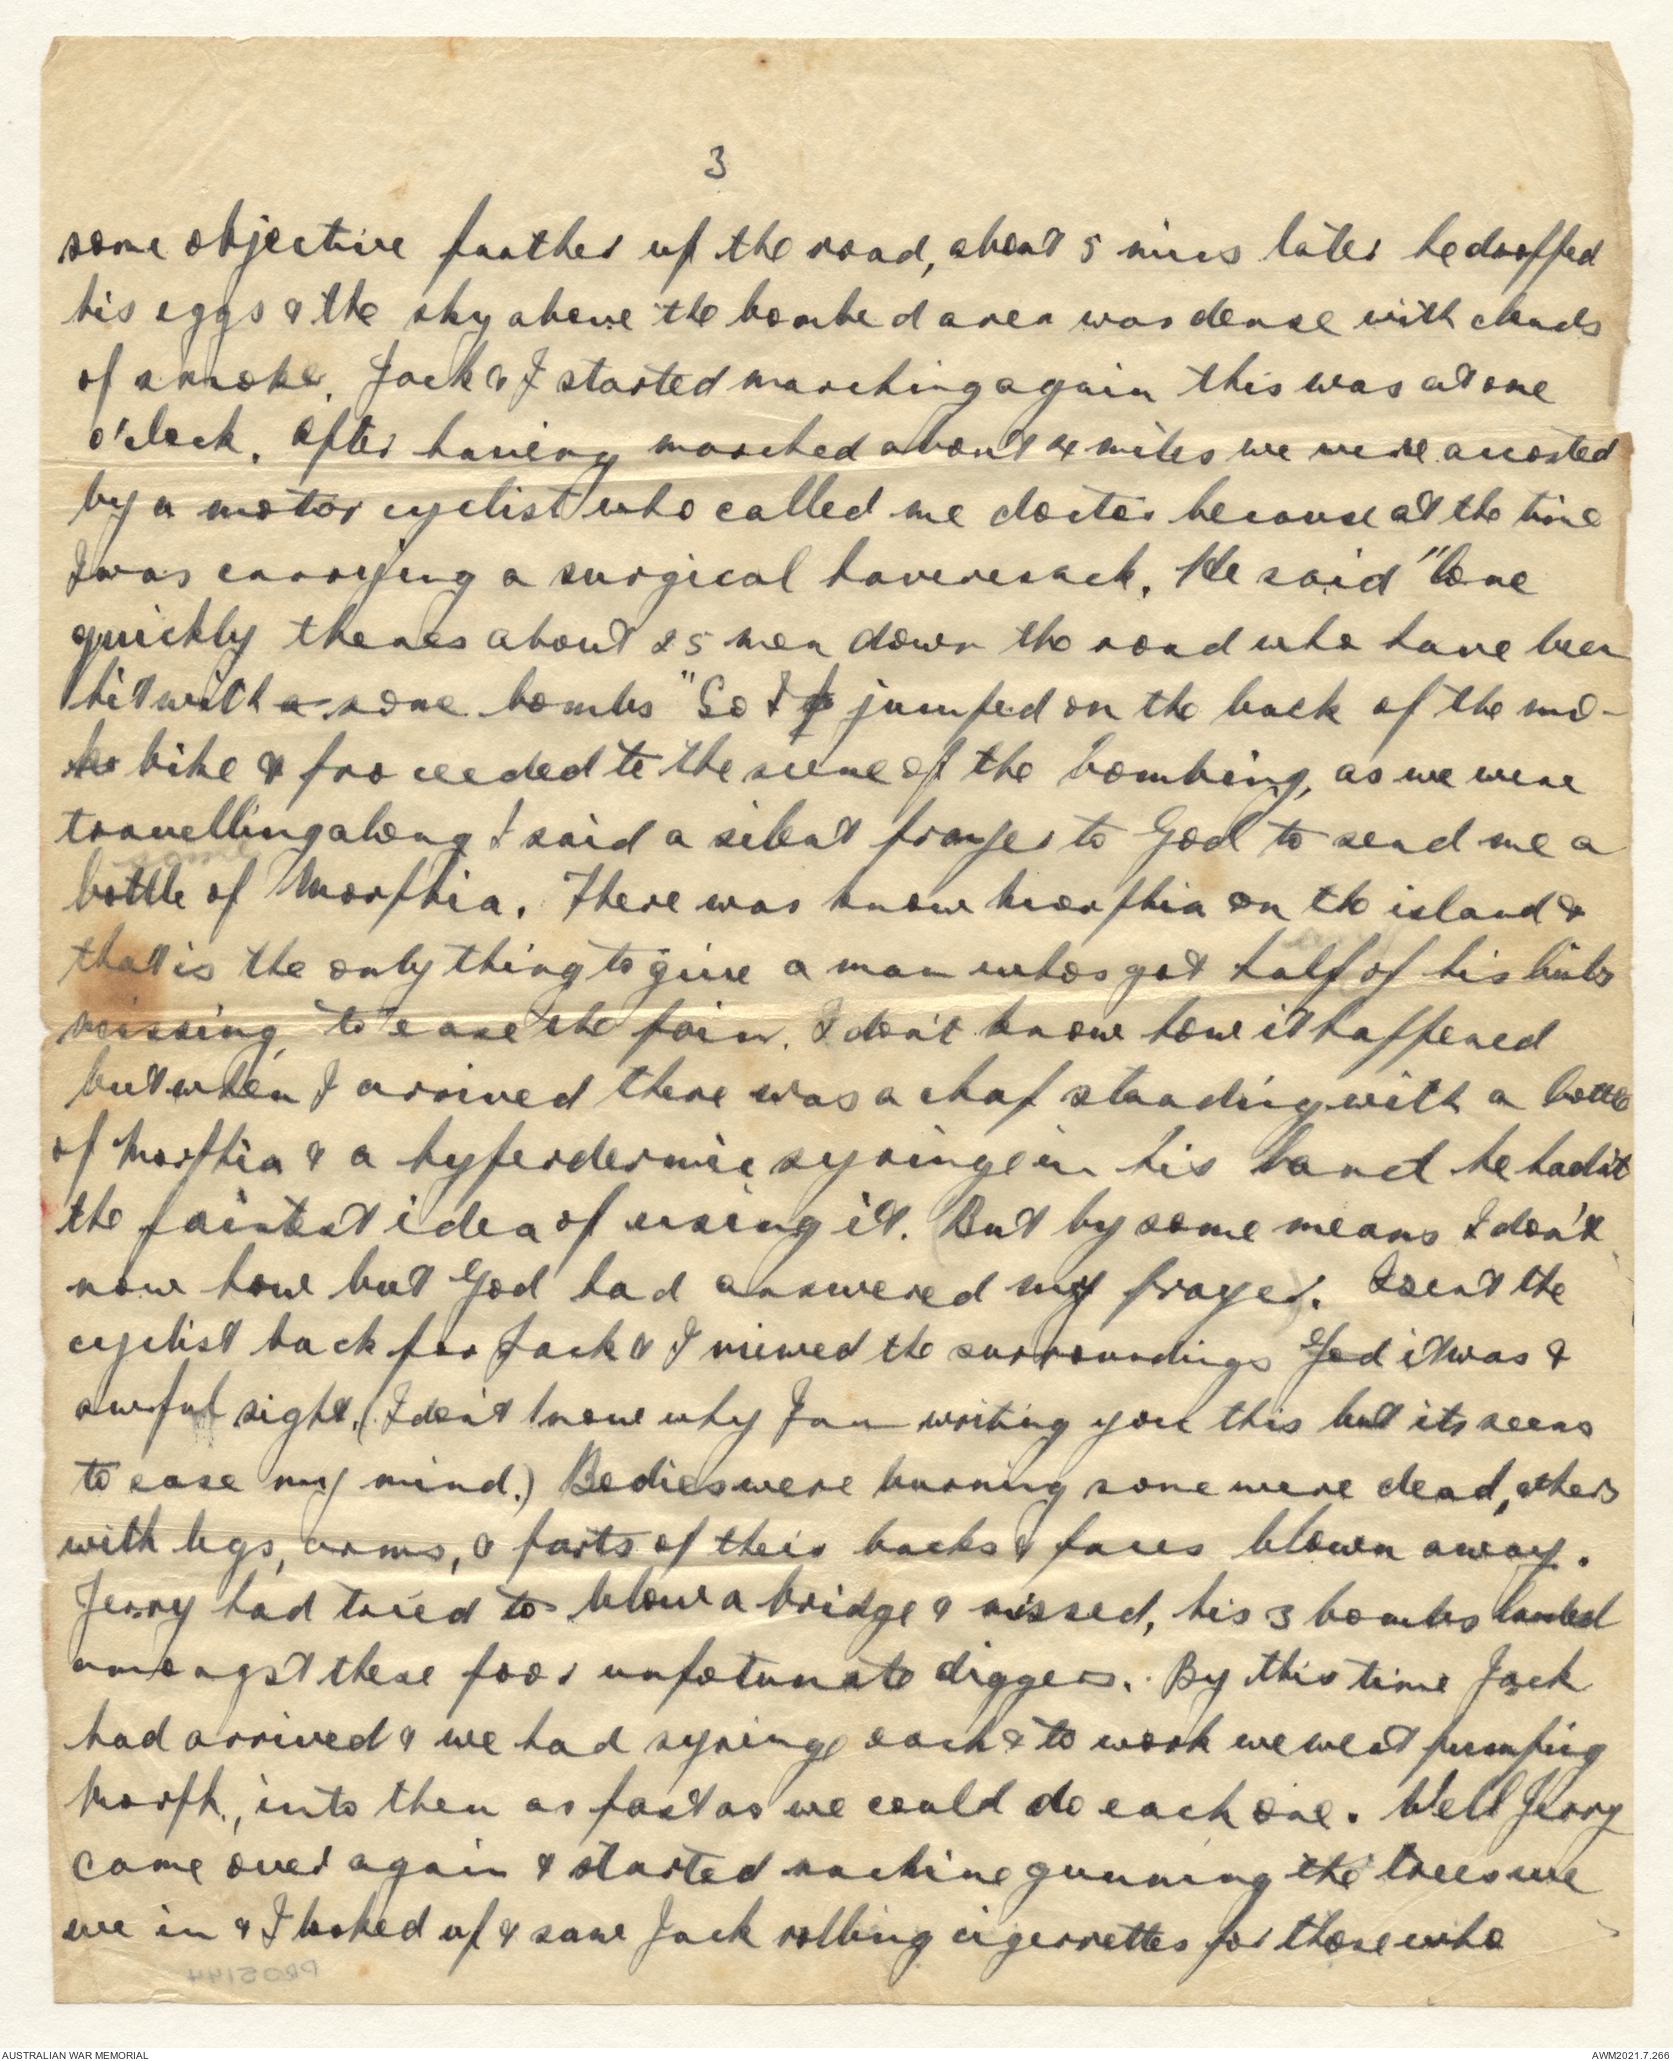 3
some objective further up the road, about 5 mins later he dropped
his eggs & the sky above the bombed area was dense with clouds
of smoke. Jack & I started marching again this was at one
o'clock. After having marched about 4 miles we were accosted
by a motor cyclist who called me doctor because at the time
I was carrying a surgical haversack. He said "Come
quickly theres about 25 men down the road who have been
hit with a some bombs" So I jumped on the back of the mo-
tor bike & proceeded to the scene of the bombing, as we were
travelling along I said a silent prayer to God to send me a
bottle of Morphia. There was know morphia on the island &
that is the only thing to give a man whos got half of his limbs
missing, to ease the pain. I don't know how it happened
but when I arrived there was a chap standing with a bottle
of Morphia & a hyperdermic syringe in his hand he hadn't
the faintest idea of using it. But by some means I don't
now how but God had answered my prayer. I sent the
cyclist back for Jack & I viewed the surroundings God it was a
awful sight. (I don't know why I am writing you this but its seems
to ease my mind.) Bodies were burning some were dead, others
with legs, arms, & parts of their backs & faces blown away.
Jerry had tried to blow a bridge & missed, his 3 bombs landed
amongst these poor unfotunate diggers. By this time Jack
had arrived & we had syringe each & to work we went pumping
Morph., into them as fast as we could do each one. Well Jerry
came over again & started machine gunning the trees we
we in & I looked up & saw Jack rolling cigerrettes for those who
PR05144
AUSTRALIAN WAR MEMORIAL
AWM2021.7.266